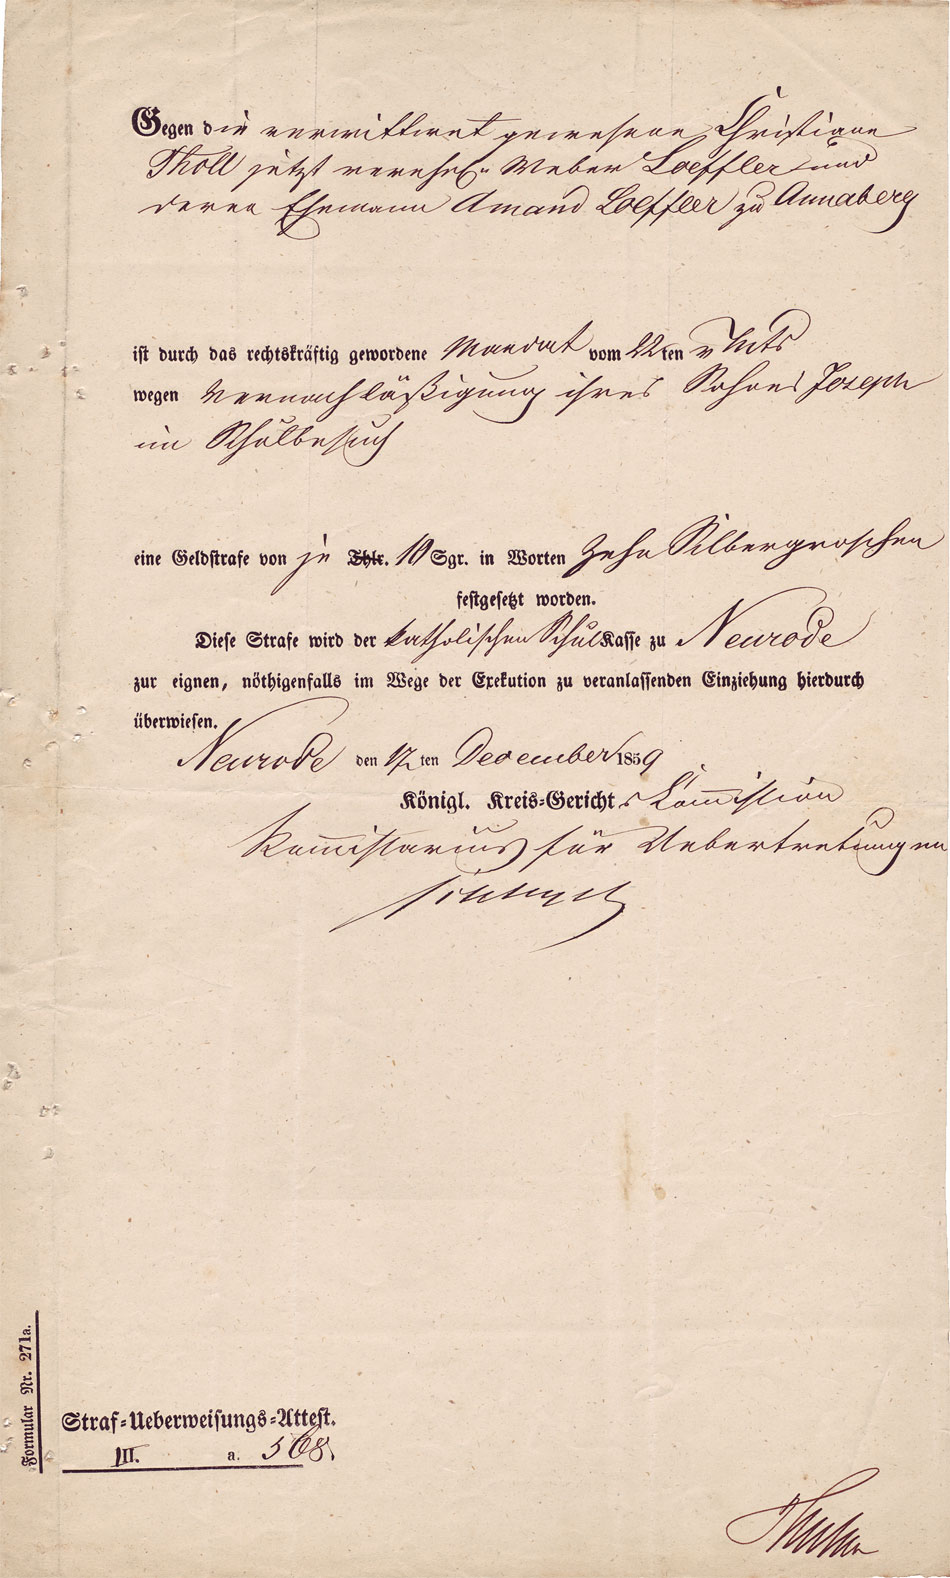 Gegen die verwittwet gewesene Christiane
Tholl jetzt vereh. Weber Loeffler und
deren Ehemann Amand Loeffler zu Annaberg
ist durch das rechtskräftig gewordene Mandat vom 22ten v Mts
wegen Vernachläßigung ihres Sohnes Joseph
im Schulbesuch
eine Geldstrafe von je Thlr. 10 Sgr. in Worten Zehn Silbergroschen
festgesetzt worden.
Diese Strafe wird der katholischen Schul Kasse zu Neurode
zur eignen, nöthigenfalls im Wege der Exekution zu veranlassenden Einziehung hierdurch
überwiesen.
Neurode den 17ten December 1859
Königl. Kreis-Gerichts Kommission
Kommissarius für Uebertretungen
Formular Nr. 271a.
Straf-Ueberweisungs-Attest.
III. a. 568.